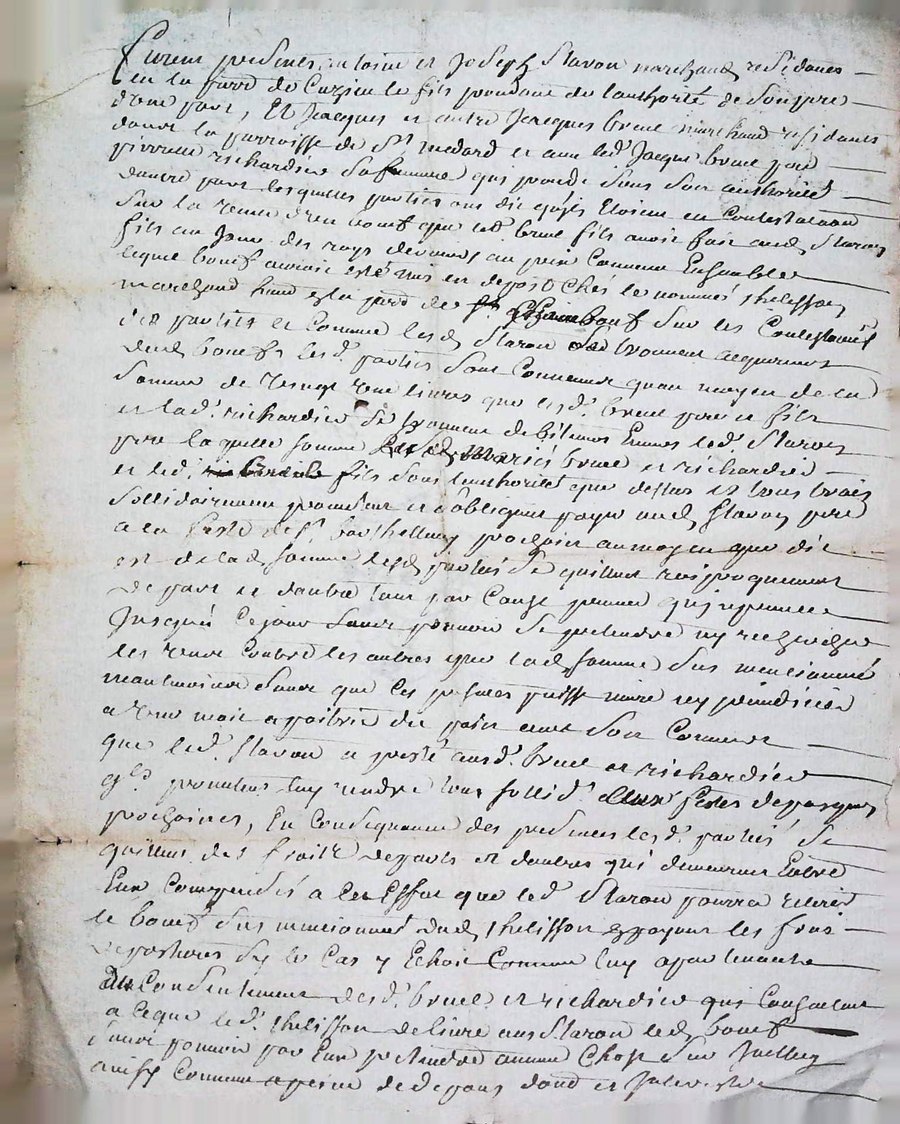 furent presents antoine et Joseph Staron marchands residants
en la parre de Curzieu le fils procedant de lauthorté de son pere
d'une part, Et Jacques et autre Jacques brune marchand residants
dans la parroisse de St medard et anne led. Jacque brune pere
pierrette richardier sa femme qui procede sous son authorité
dautre part lesquelles parties ont dit qu'jls Etoient en Contestation
sur la vente d'un boeuf que led. brune fils avoit fait aud. Staron
fils au Jour des roys dernier, au prix Convenu Ensemble
lequel boeuf auroit esté mis en depost Chés le nommé thelisson
marchand sur les Contestations
des parties et Comme lesd Staron se trouvent acquereurs
dud. boeuf lesd. parties sont Convenues quau moyen de la
somme de vingt une livres que lesd. brune pere et fils
et lad. richardier se trouvent debiteurs Envers led. Staron
pere laquelle somme lesd mariés brune et richardier
et led. fils sous lauthorité que dessus et tous trois
sollidairement promettent et s'obligent payer aud. Staron pere
a la feste de St. barthellemy prochain au moyen que dit
est de lad. somme lesd. parties se quittent reciproquement
de part et dautre tant par Cause prevue qu'jnprevue
Jusqu'à Ce jour sans pouvoir se pretendre ny rechercher
les uns Contre les autres que lad. somme sus mentionné
neantmoins sans que Ces presentes puisse nuire ny prejudicier
a une mait a paitrir du pain avec son Couvert
que led. Staron a presté aud. brune et richardier
qls. promettent luy rendre tous sollid. aux festes de pasques
prochaines, En Consequence des presentes lesd. parties se
quittent des fraits de parts et dautres qui demeurent Entre
Eux Compensés a Cet Effet que led. Staron pourra retirer
le boeuf sus mentionné dud. thelisson En payant les frais
de pastures sy le Cas y Echoit Comme luy apartenants
du Consentement desd. brune et richardier qui Consentent
a Ceque led. thelisson delivre aud Staron led. boeuf
sans pouvoir par Eux pretendre aucune Chose sur Jcelluy
ainsy Convenu a peine de depens dom. et Jnterests